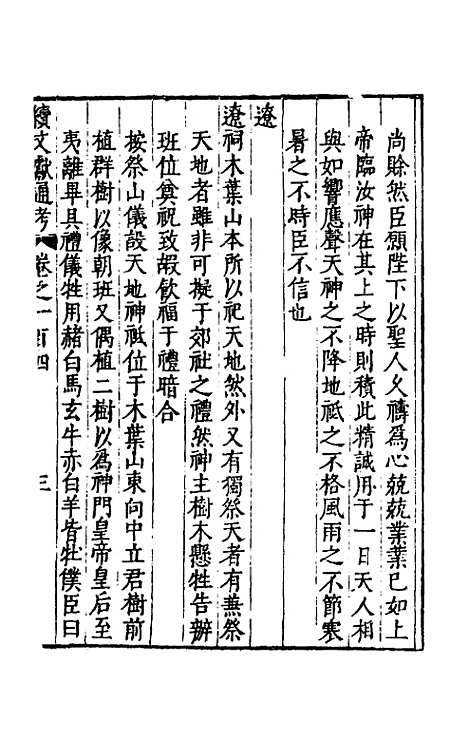 尚賖然臣願陛下以聖人乆禱爲心兢兢業業已如上
帝臨汝神在其上之時則積此精誠用于一日天人相
與如響應聲天神之不降地祗之不格風雨之不節寒
暑之不時臣不信也
遼
遼祠木葉山本所以祀天地然外又有獨祭天者有蕪祭
天地者雖非可擬于郊社之禮然神主樹木懸牲告辦
班位奠祝致嘏飲福于禮暗合
按祭山儀設天地神祗位于木葉山東向中立君樹前
植群樹以像朝班又偶植二樹以爲神門皇帝皇后至
夷離畢具禮儀牲用赭白馬玄牛赤白羊皆牡僕臣曰
續文獻通考 卷之一百四 三